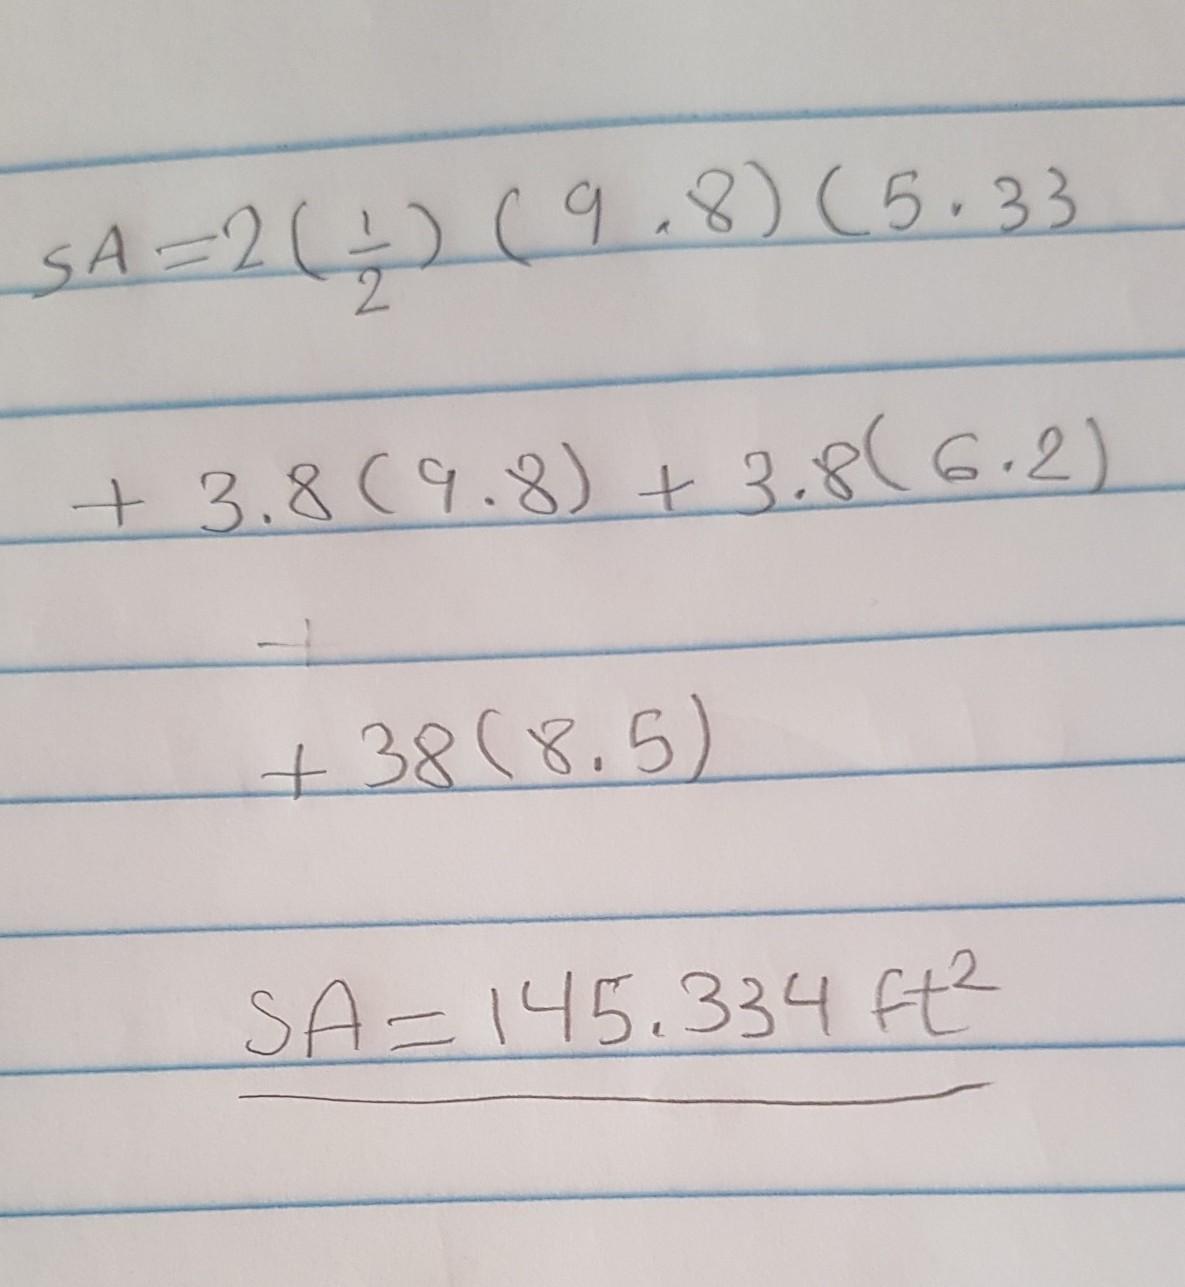 SA = 2 (1/2) (9.8) (5.33
+ 3.8 (9.8) + 3.8 (6.2)
+
+ 38 (8.5)
SA = 145.334 ft²